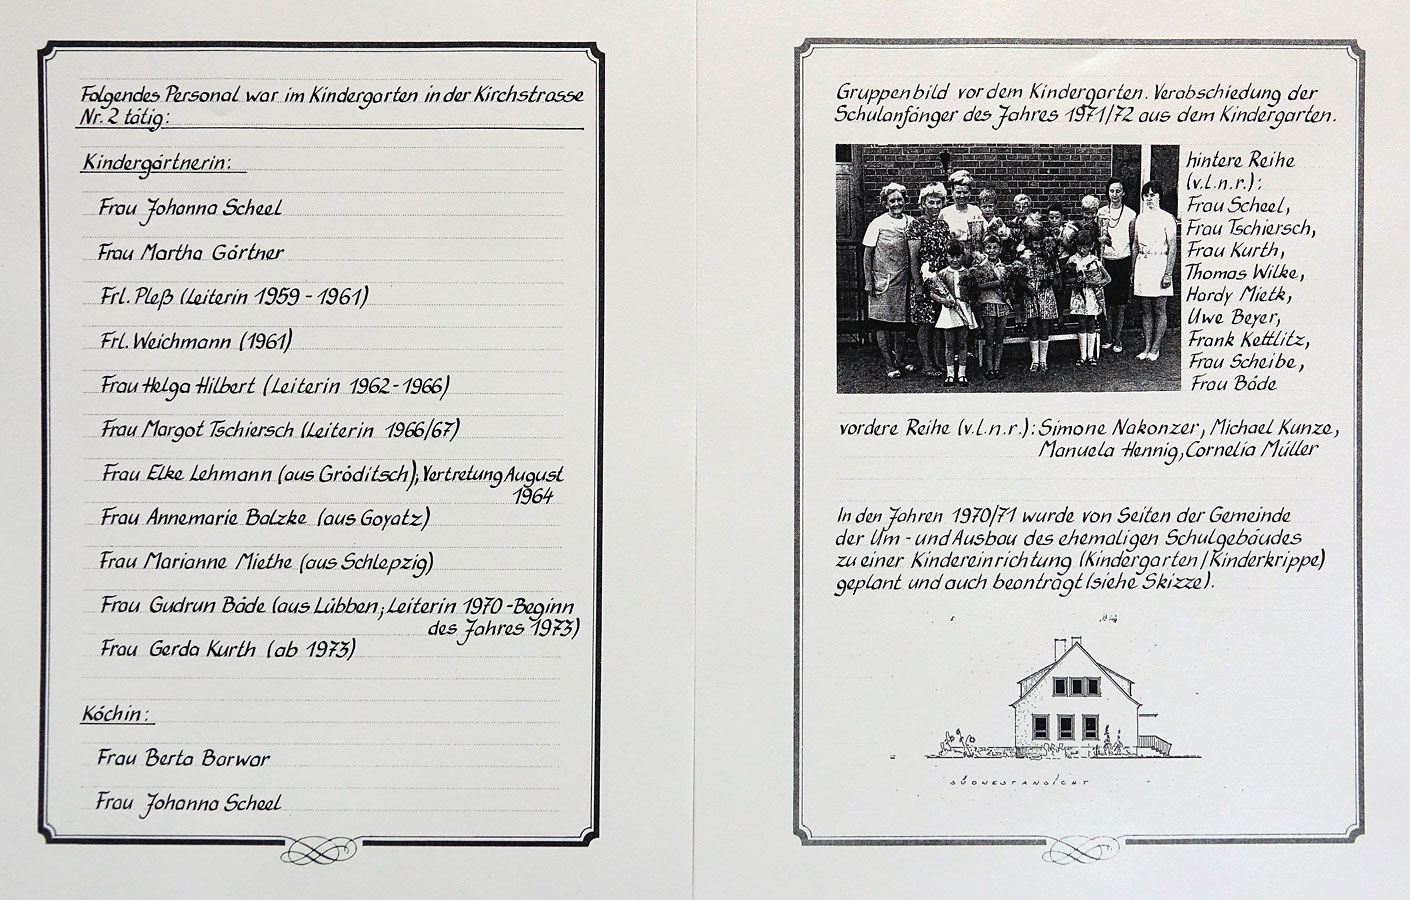 Folgendes Personal war im Kindergarten in der Kirchstrasse
Nr. 2 tätig:
Kindergärtnerin:
Frau Johanna Scheel
Frau Martha Gärtner
Frl. Pleß (Leiterin 1959 - 1961)
Frl. Weichmann (1961)
Frau Helga Hilbert (Leiterin 1962 - 1966)
Frau Margot Tschiersch (Leiterin 1966/67)
Frau Elke Lehmann (aus Gröditsch); Vertretung August
1964
Frau Annemarie Balzke (aus Goyatz)
Frau Marianne Miethe (aus Schlepzig)
Frau Gudrun Bäde (aus Lübben; Leiterin 1970 - Beginn
des Jahres 1973)
Frau Gerda Kurth (ab 1973)
Köchin:
Frau Berta Barwar
Frau Johanna Scheel
Gruppenbild vor dem Kindergarten. Verabschiedung der
Schulanfänger des Jahres 1971/72 aus dem Kindergarten.
hintere Reihe
(v.l.n.r.):
Frau Scheel,
Frau Tschiersch,
Frau Kurth,
Thomas Wilke,
Hardy Mietk,
Uwe Beyer,
Frank Kettlitz,
Frau Scheibe,
Frau Bäde
vordere Reihe (v.l.n.r.): Simone Nakonzer, Michael Kunze,
Manuela Hennig, Cornelia Müller
In den Jahren 1970/71 wurde von Seiten der Gemeinde
der Um - und Ausbau des ehemaligen Schulgebäudes
zu einer Kindereinrichtung (Kindergarten/Kinderkrippe)
geplant und auch beantragt (siehe Skizze).
SÜDWESTANSICHT